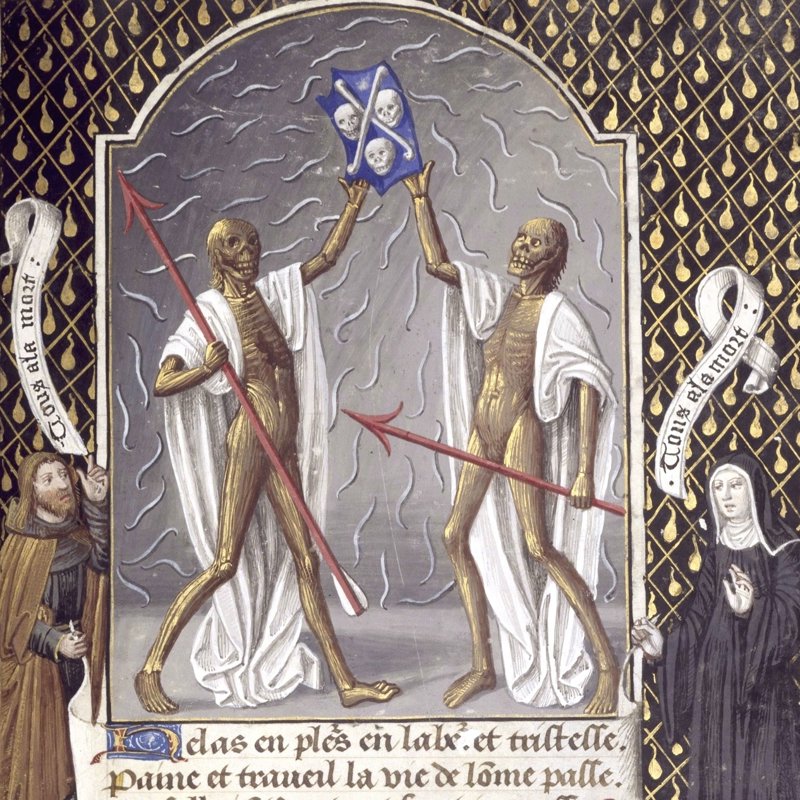 Tous a la mort .
· Tous a la mort ·
Helas en plẽs eñ labr̃. et tristesse.
Paine et traueil la vie de lõme passe.